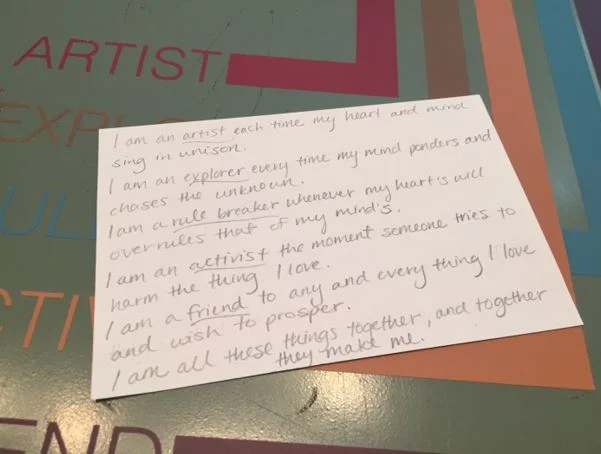 ARTIST
EXPL
I am an artist each time my heart and mind
sing in unison.
I am an explorer every time my mind ponders and
chases the unknown.
I am a rule breaker whenever my heart's will
overrules that of my mind's.
I am an activist the moment someone tries to
harm the thing I love.
I am a friend to any and every thing I love
and wish to prosper.
I am all these things together, and together
they make me.
UL
CTIV
END